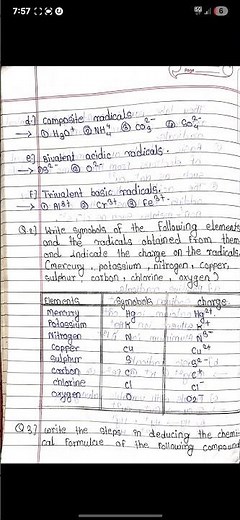 7:57
6
Page
d.) Composite radicals
→ ① H₃O⁺ ② NH₄⁺ ③ CO₃²⁻ ④ SO₄²⁻
e.) Bivalent acidic radicals.
→ ① S²⁻ ② O²⁻
F.) Trivalent basic radicals.
→ ① Al³⁺ ② Cr³⁺ ③ Fe³⁺.
Q.2) Write symbols of the following elements
and the radicals obtained from them
and indicate the charge on the radicals
(mercury, potassium, nitrogen, copper,
sulphur, carbon, chlorine, oxygen)
Elements Symbols charge
mercury Hg Hg²⁺
Potassium K K⁺
Nitrogen N N³⁻
copper Cu Cu²⁺
sulphur S S²⁻
carbon C
chlorine Cl Cl⁻
oxygen O
Q3) write the steps in deducing the chemi
cal formulae of the following compound